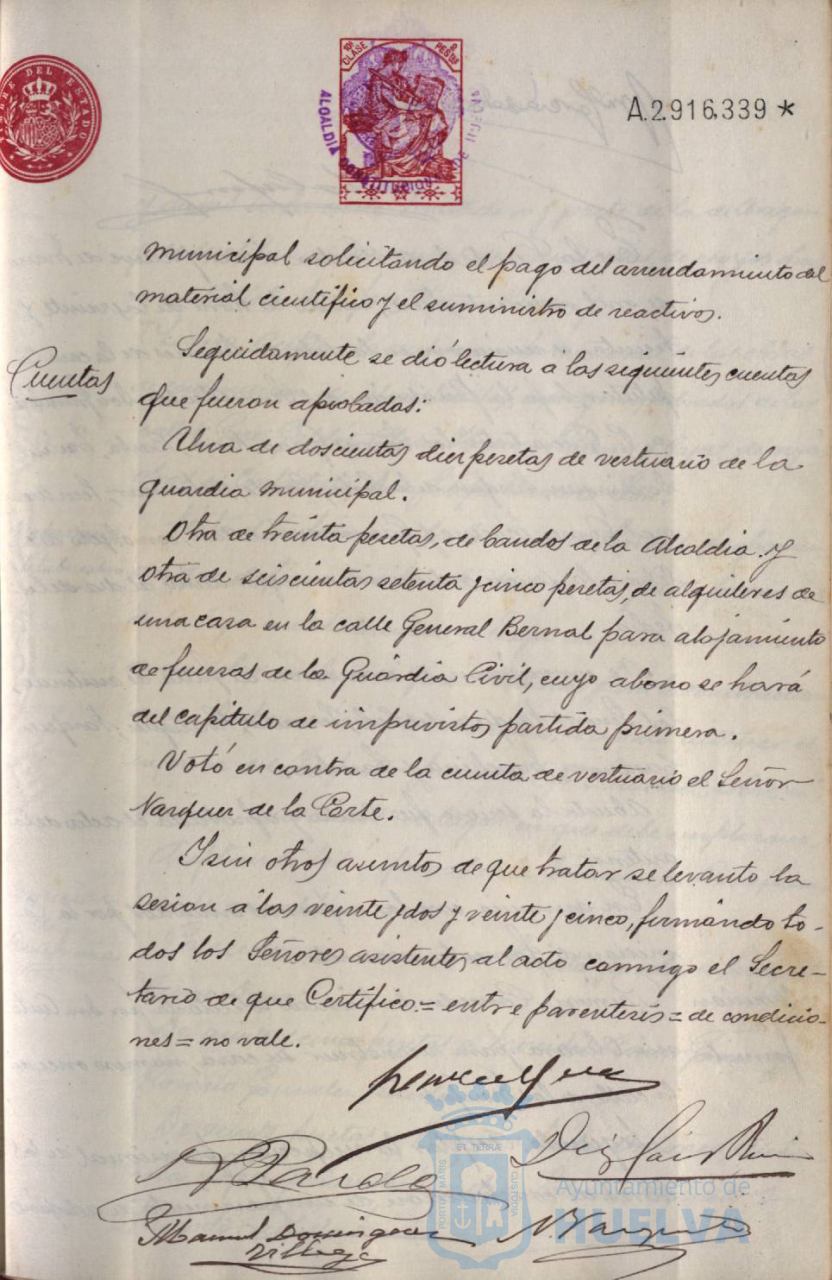 TIMBRE DEL ESTADO
10ª CLASE
8 PESETAS
ALCALDIA CONSTITUCIONAL DE
A.2.916.339 *
municipal solicitando el pago del arrendamiento del
material científico y el suministro de reactivos.
Cuentas
Seguidamente se dió lectura á las siguientes cuentas
que fueron aprobadas:
Una de doscientas diez pesetas de vestuario de la
guardia municipal.
Otra de treinta pesetas, de bandos de la Alcaldia y
otra de seiscientas setenta y cinco pesetas, de alquileres de
una casa en la calle General Bernal para alojamiento
de fuerzas de la Guardia Civil, cuyo abono se hará
del capítulo de imprevistos partida primera.
Votó en contra de la cuenta de vestuario el Señor
Vazquez de la Corte.
Y sin otros asuntos de que tratar se levanto la
sesion á las veinte y dos y veinte y cinco, firmando to-
dos los Señores asistentes al acto conmigo el Secre-
tario de que Certifico.= entre parentesis = de condicio-
nes = no vale.
Manuel Dominguez
PORTUS MARIS ET TERRAE CUSTODIA
Ayuntamiento de
HUELVA